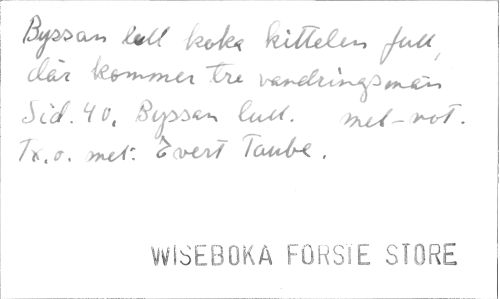 Byssan lull koka kittelen full,
där kommer tre vandringsmän
Sid. 40. Byssan lull. mel-not.
Tx. o. mel: Evert Taube.
WISEBOKA FORSIE STORE